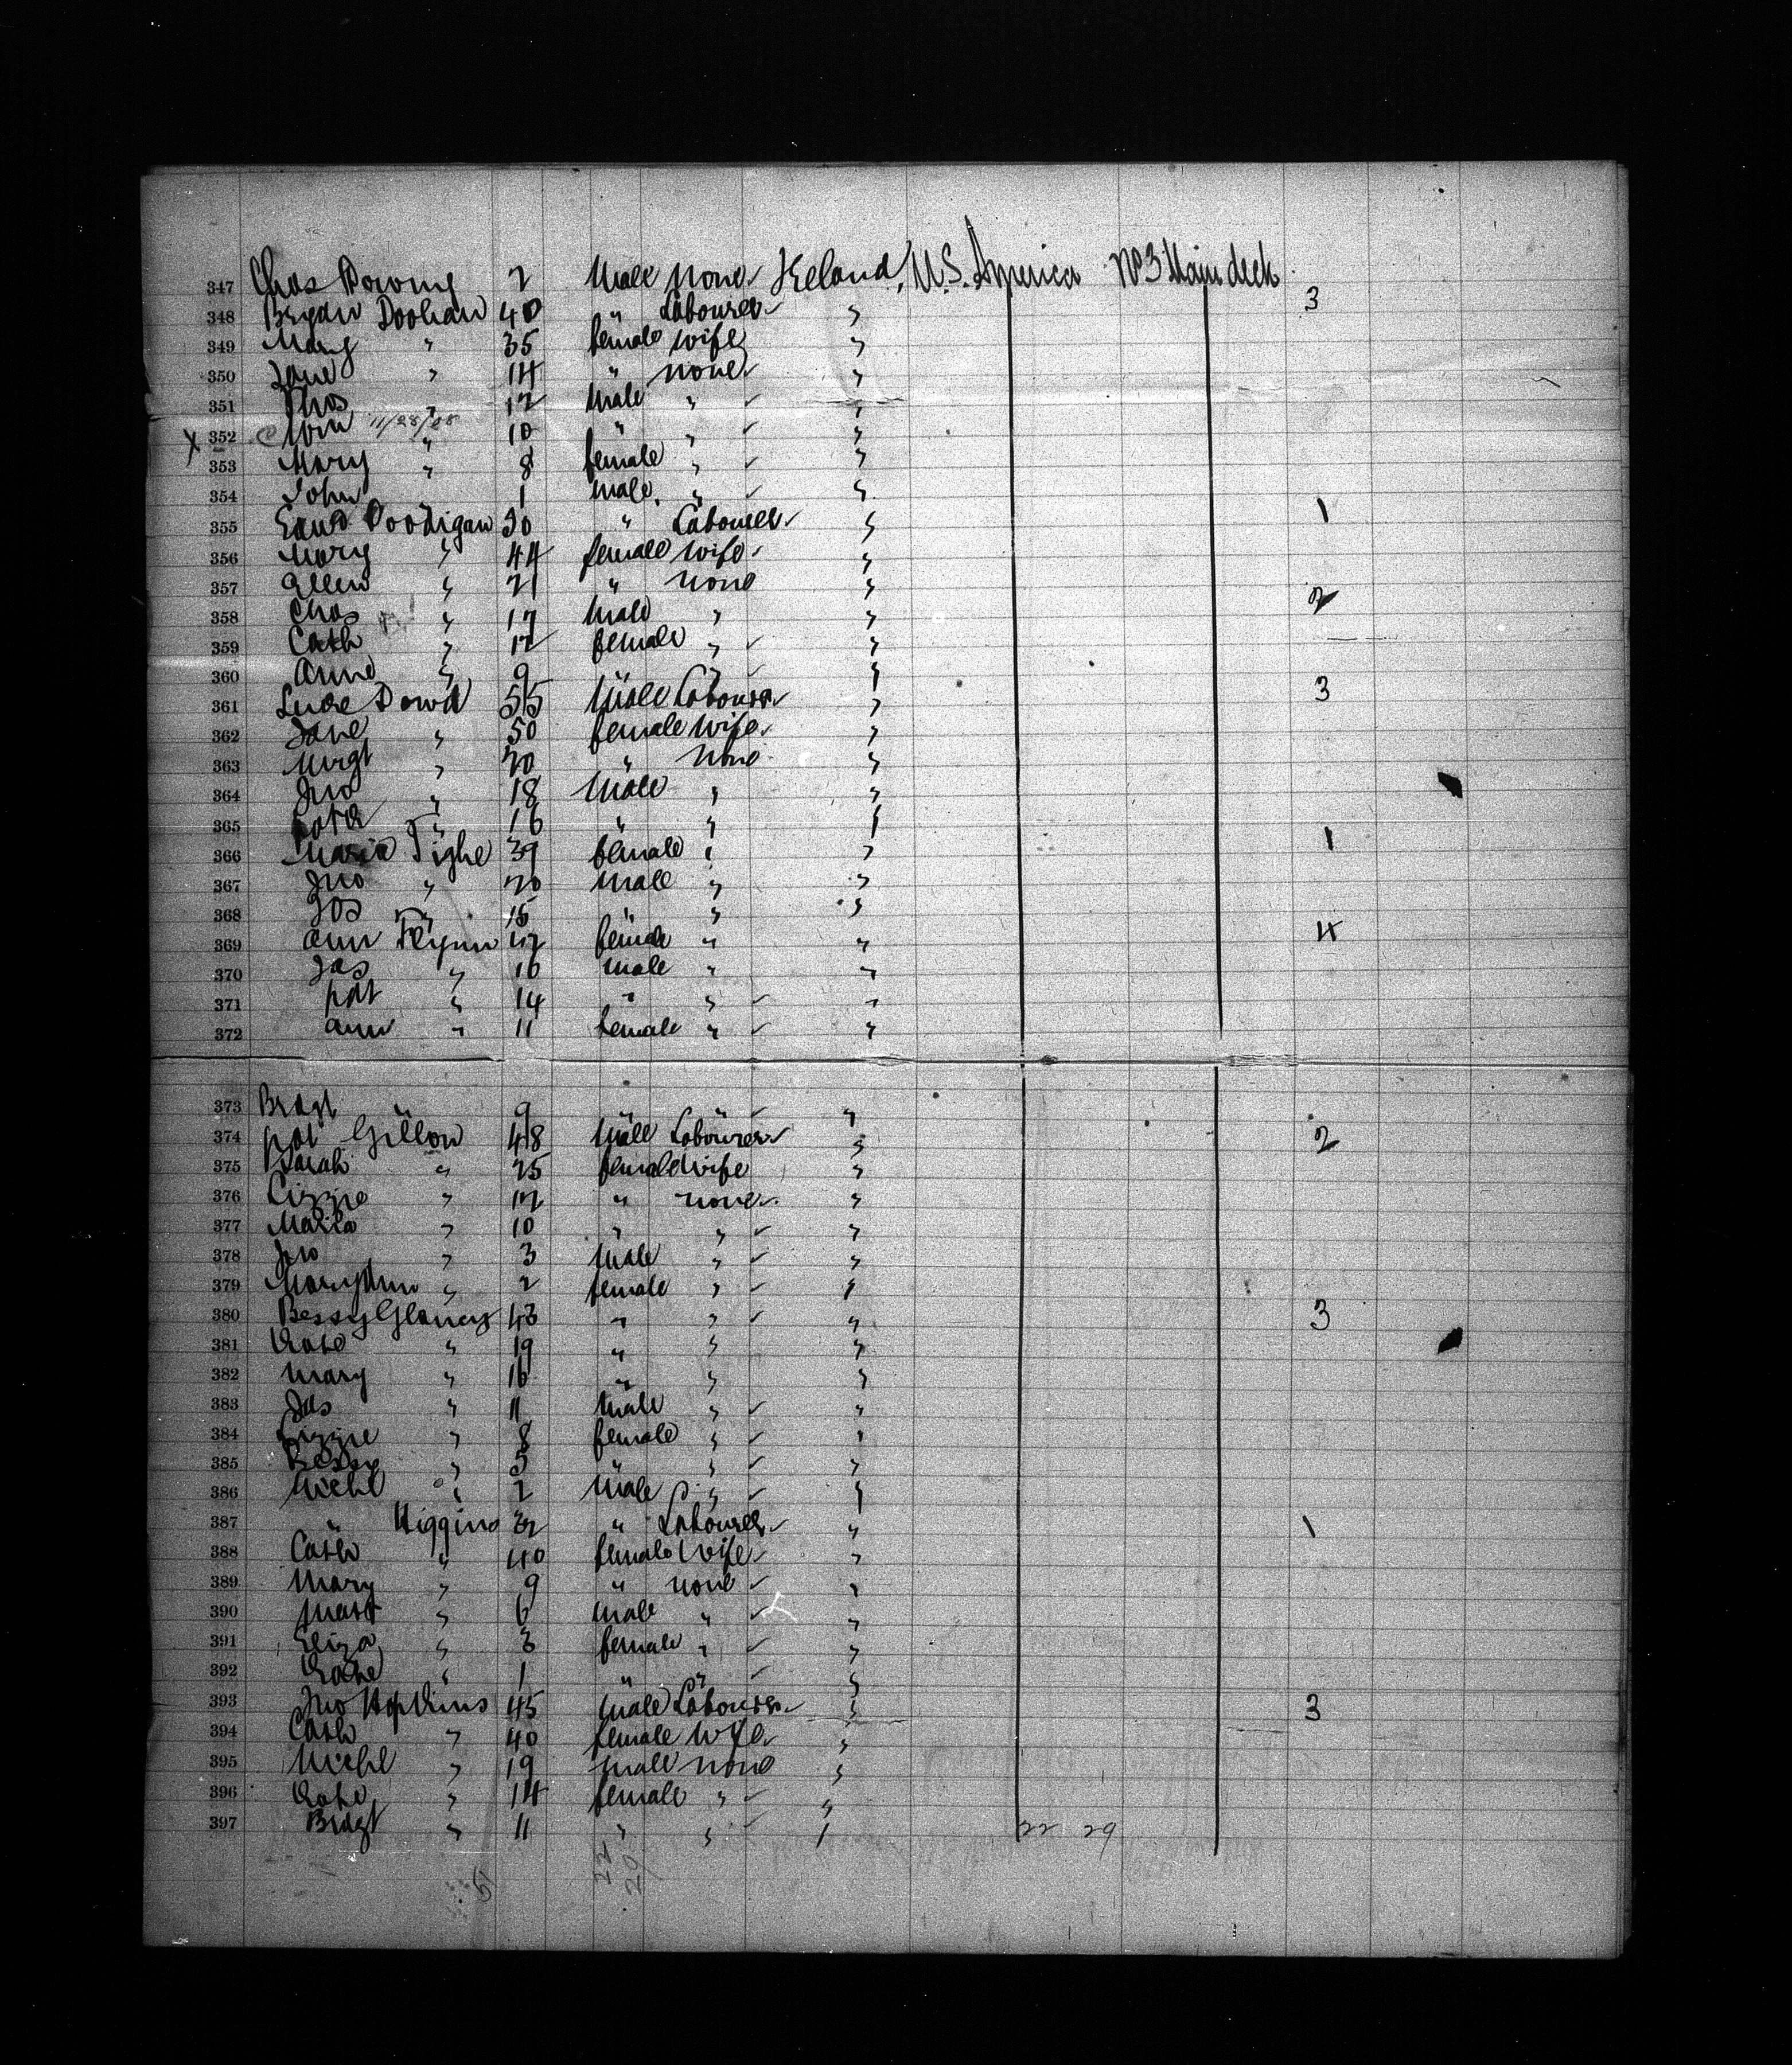 347 Chas Downy 2 Male none Ireland, U.S. America No 3 Main deck
348 Bryan Doolian 40 " Labourer " 3
349 Mary " 35 female wife "
350 Jane " 14 " none "
351 Thos " 12 Male " "
X 352 C Wm 11/28/88 " 10 " " "
353 Mary " 8 female " "
354 John " 1 male " "
355 Edwd 30 " Labourer " 1
356 Mary " 44 female wife "
357 Ellen " 21 " none "
358 Chas " 17 Male " " 2
359 Cath " 12 female " "
360 Anne " 9 " " "
361 Luke Dowd 55 Male Labourer " 3
362 Jane " 50 female wife "
363 Mrgt " 20 " none "
364 Jno " 18 Male " "
365 " 16 " " "
366 Maria Tighe 39 female " " 1
367 Jno " 20 male " "
368 Jos " 15 " " "
369 Ann Flynn 42 female " " 4
370 Jas " 16 male " "
371 pat " 14 " " "
372 ann " 11 female " "
373 Brdgt " 9 " " "
374 pat Gillon 48 Male Labourer " 2
375 Sarah " 25 female wife "
376 Lizzie " 12 " none "
377 Maria " 10 " " "
378 Jno " 3 Male " "
379 Mary Ann " 2 female " "
380 Bessy Glancy 43 " " " 3
381 Kate " 19 " " "
382 Mary " 16 " " "
383 Jas " 11 Male " "
384 Lizzie " 8 female " "
385 Bessy " 5 " " "
386 Michl " 2 Male " "
387 " Higgins 32 " Labourer " 1
388 Cath " 40 female Wife "
389 Mary " 9 " none "
390 Matt " 6 Male " "
391 Eliza " 3 female " "
392 Kate " 1 " " "
393 Jno Hopkins 45 Male Labourer " 3
394 Cath " 40 female Wife "
395 Michl " 19 male none "
396 Kate " 14 female " "
397 Brdgt " 11 " " " 22 29
22
29